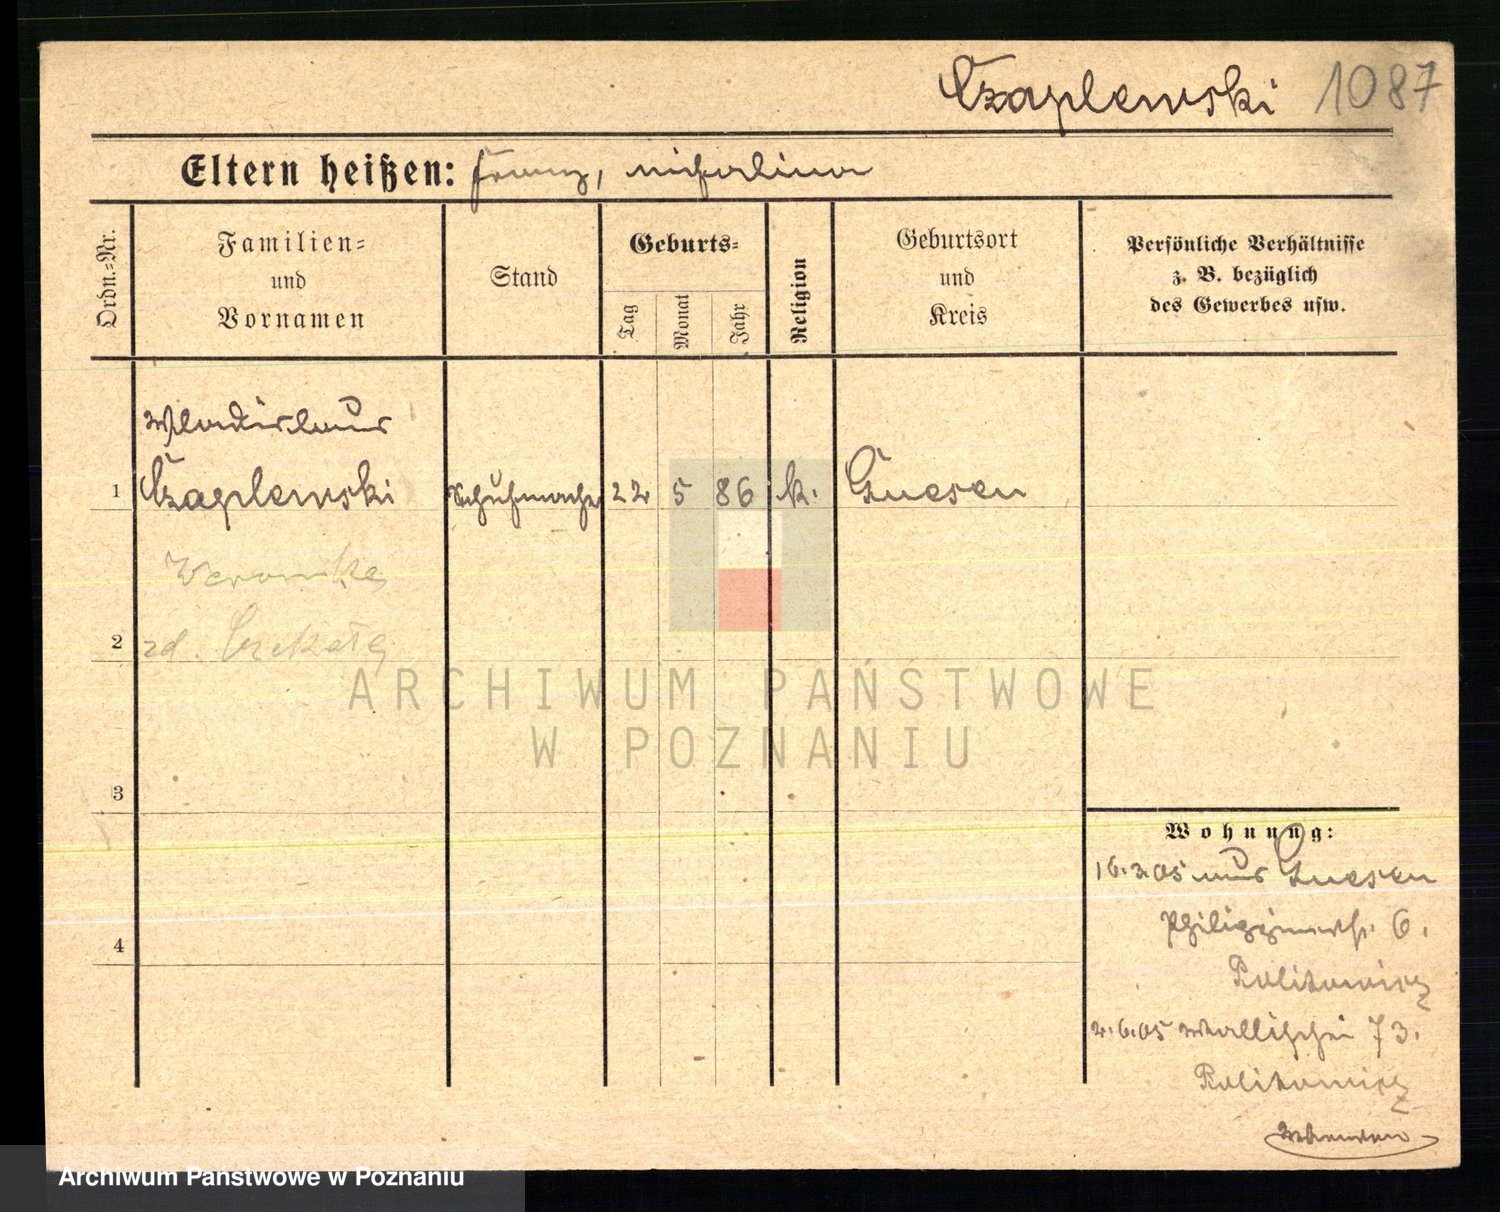 Czaplewski 1087
Eltern heißen: Franz, Michalina
Ordn.-Nr.
Familien-
und
Vornamen
Stand
Geburts-
Tag
Monat
Jahr
Religion
Geburtsort
und
Kreis
Persönliche Verhältnisse
z. B. bezüglich
des Gewerbes usw.
Wladislaus
1 Czaplewski Schuhmacher 22 5 86 k. Gnesen
Weronika
2 zd.
3
4
Wohnung:
16.3.05 aus Gnesen
Philippinenstr. 6.
Politowicz
2.6.05 Wallischei 73.
Politowicz
ARCHIWUM PAŃSTWOWE
W POZNANIU
Archiwum Państwowe w Poznaniu